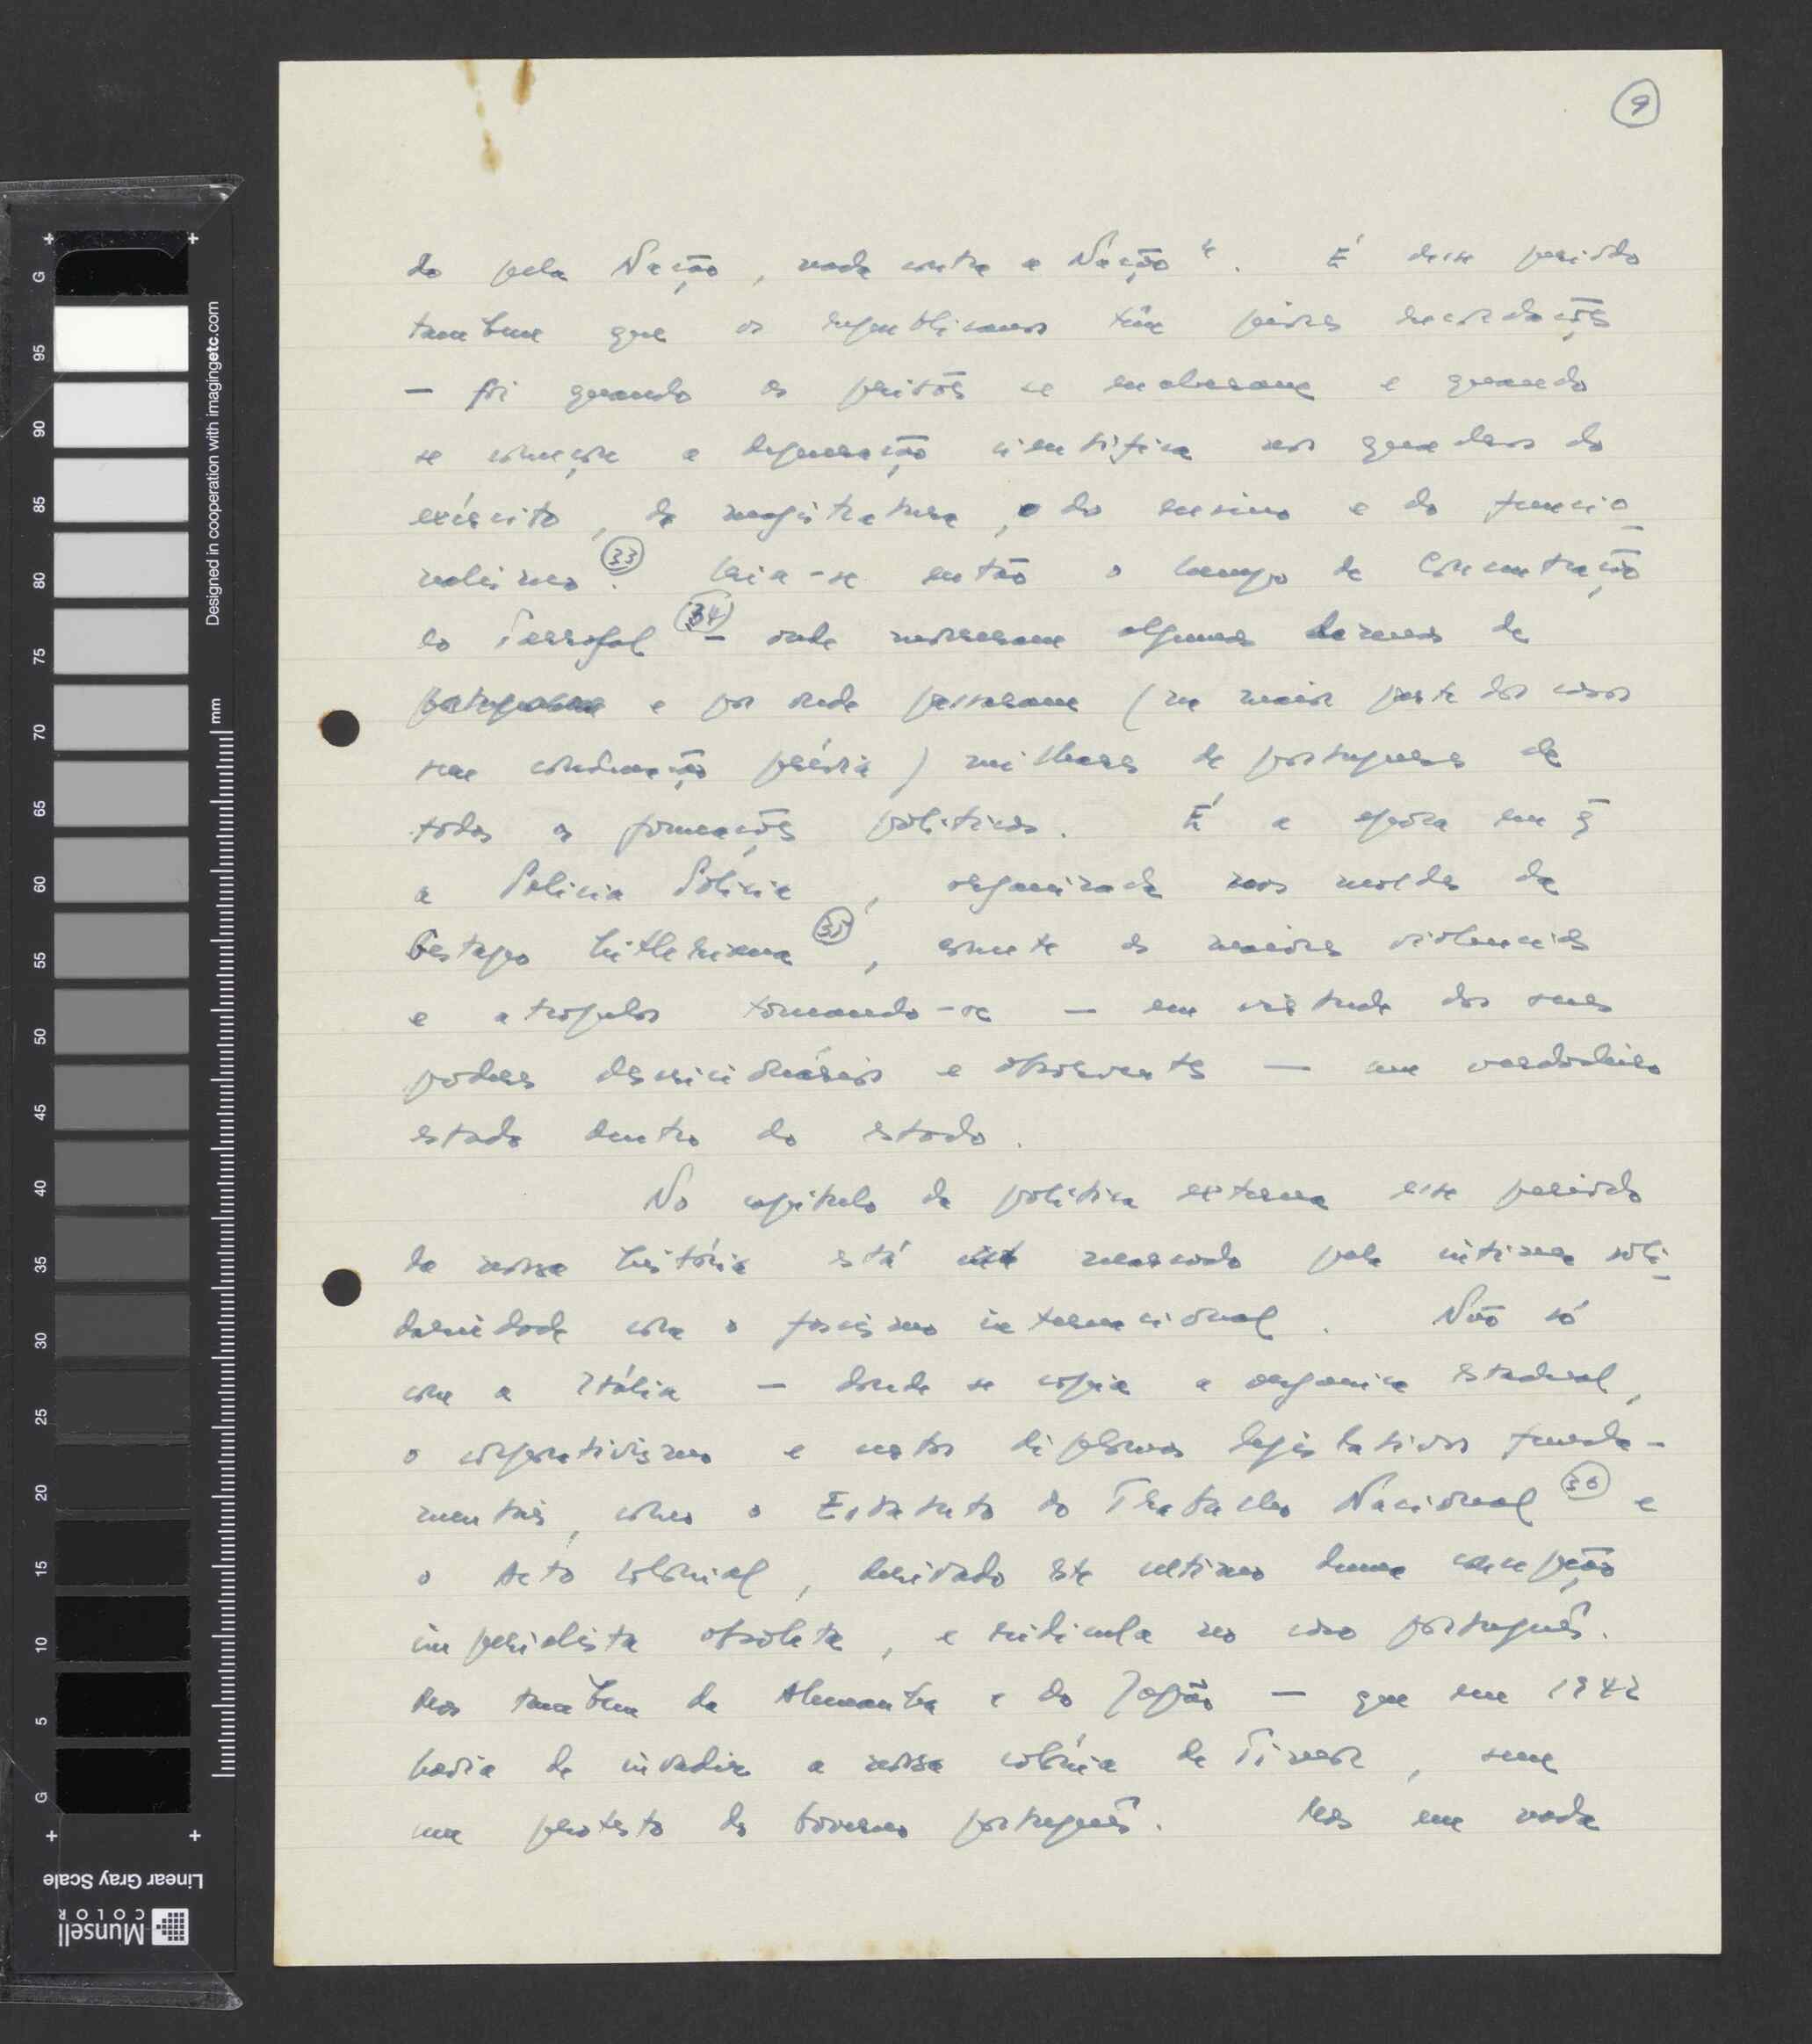 9
do pela Nação, nada contra a Nação". É desse periodo
tambem que os republicanos têm piores recordações
— foi quando as prisões se encheram e quando
se começou a depuração cientifica nos quadros do
exército, da magistratura, do ensino e do funcio-
nalismo (33). Cria-se então o Campo de Concentração
do Tarrafal (34) — onde morreram algumas dezenas de
portugueses e por onde passaram (na maior parte dos casos
sem condenação prévia) milhares de portugueses de
todas as formações politicas. É a época em q̄
a Policia Politica, organizada nos moldes da
Gestapo hitleriana (35), comete as maiores violencias
e atropelos tornando-se — em virtude dos seus
poderes discricionários e absorventes — um verdadeiro
estado dentro do estado.
No capitulo da politica externa esse periodo
da nossa história está marcado pela intima soli-
dariedade com o fascismo internacional. Não só
com a Itália — donde se copia a organica estadual,
o corporativismo e certos diplomas legislativos funda-
mentais, como o Estatuto do Trabalho Nacional (36) e
o Acto Colonial, derivado este ultimo duma concepção
imperialista obsoleta, e ridicula no caso português.
Mas tambem da Alemanha e do Japão — que em 1942
havia de invadir a nossa colónia de Timor, sem
um protesto do Governo português. Mas em nada
Designed in cooperation with imagingetc.com
mm
G 95 90 85 80 75 70 65 60 55 50 45 40 35 30 25 20 15 10 5 G
Linear Gray Scale
Munsell
COLOR